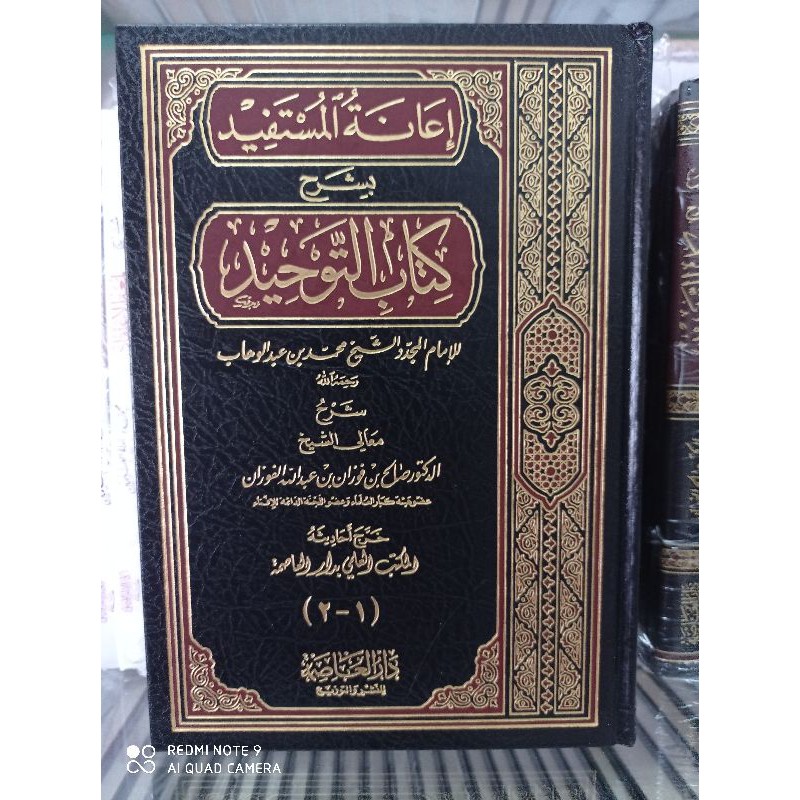 إعَانَةُ المُسْتَفِيْد
بِشَرْح
كِتَابِ التَّوْحِيْد
للإمام المجدد الشيخ محمد بن عبد الوهاب
رحمه الله
شَرْحُ
معالي الشيخ
الدكتور صالح بن فوزان بن عبد الله الفوزان
عضو هيئة كبار العلماء وعضو اللجنة الدائمة للإفتاء
خَرَّجَ أحَادِيثَهُ
المكتب العلمي بدار العاصمة
(١-٢)
دَارُ العَاصِمَة
للنشر والتوزيع
REDMI NOTE 9
AI QUAD CAMERA